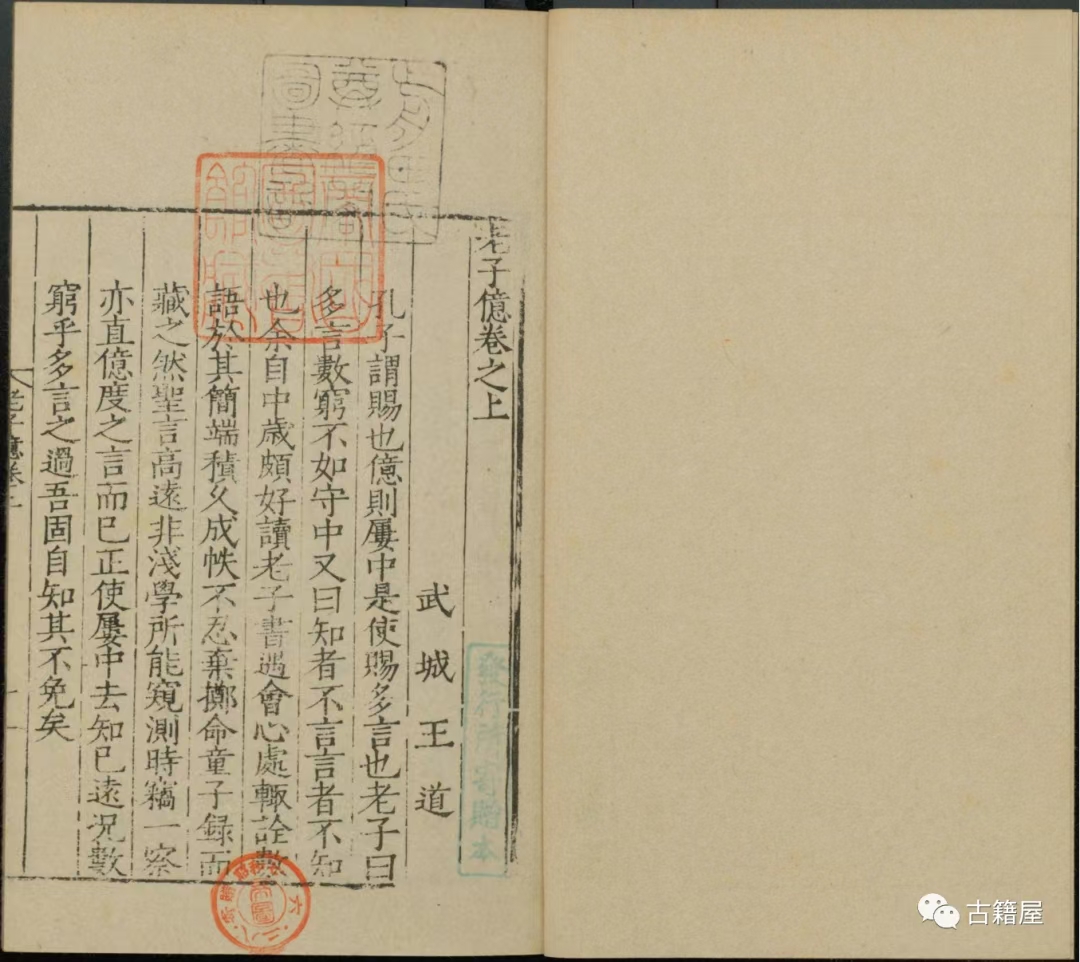 老子億卷之上
武城王道
孔子謂賜也億則屢中是使賜多言也老子曰
多言數窮不如守中又曰知者不言言者不知
也余自中歳頗好讀老子書遇會心處輙詮數
語於其簡端積久成帙不忍棄擲命童子録而
藏之然聖言高遠非淺學所能窺測時竊一察
亦直億度之言而已正使屢中去知已遠況數
窮乎多言之過吾固自知其不免矣
老子億卷上
發行所寄贈本
古籍屋